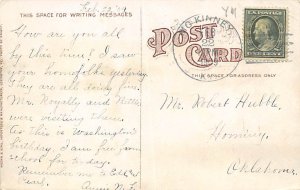 Feb. 22 '09
THIS SPACE FOR WRITING MESSAGES
How are you all
by this time? I saw
your homefolks yesterday
They are all doing fine.
Mrs. Royalty and
were visiting them.
As this is Washington's
birthday, I am free from
school for to-day.
Remember me to
Pearl.
Anna
POST
CARD
THIS SPACE FOR ADDRESS ONLY
McKINNEY
Mr. Robert Hubble,
Hominy,
Oklahoma.